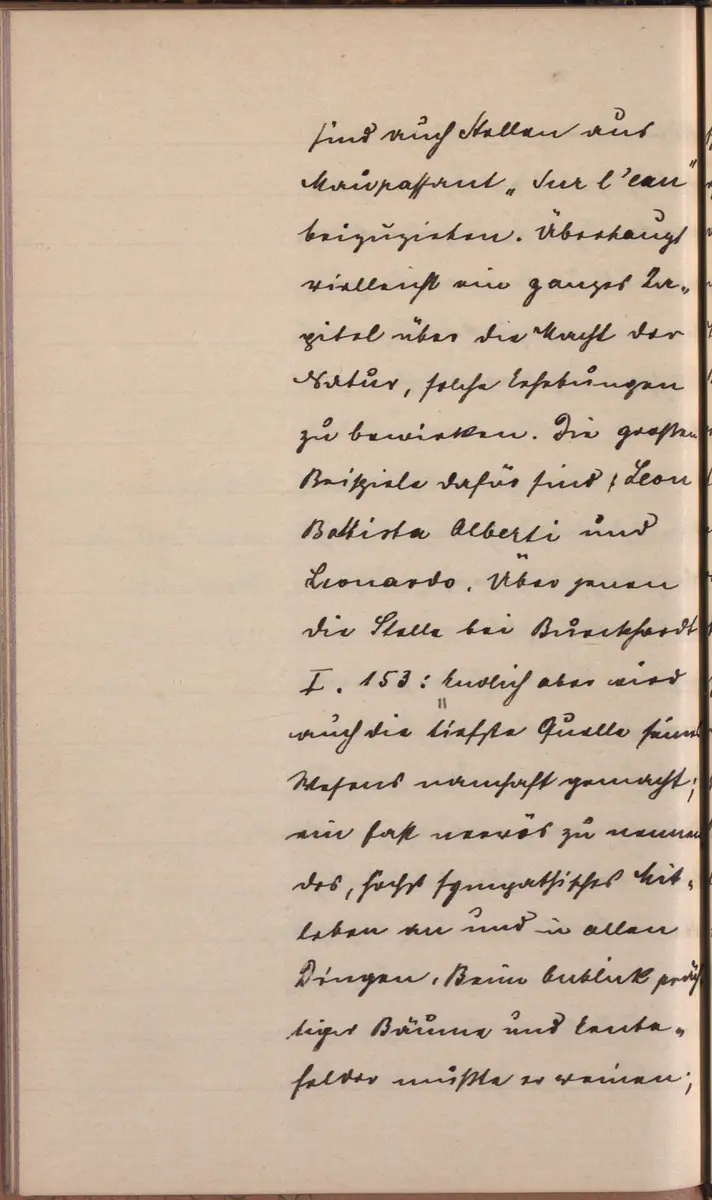 sind auch Stellen aus
Maupassant „Sur l'eau"
beizuziehen. Überhaupt
vielleicht ein ganzes Ka-
pitel über die Macht der
Natur, solche Erhebungen
zu bewirken. Die großen
Beispiele dafür sind Leon
Battista Alberti und
Leonardo. Über jenen
die Stelle bei Burckhardt
I. 153: „Endlich aber wird
auch die tiefste Quelle seines
Wesens namhaft gemacht;
ein fast nervös zu nennen
des, höchst sympathisches Mit-
leben an und in allen
Dingen. Beim Anblick präch
tiger Bäume und Ernte-
felder mußte er weinen;